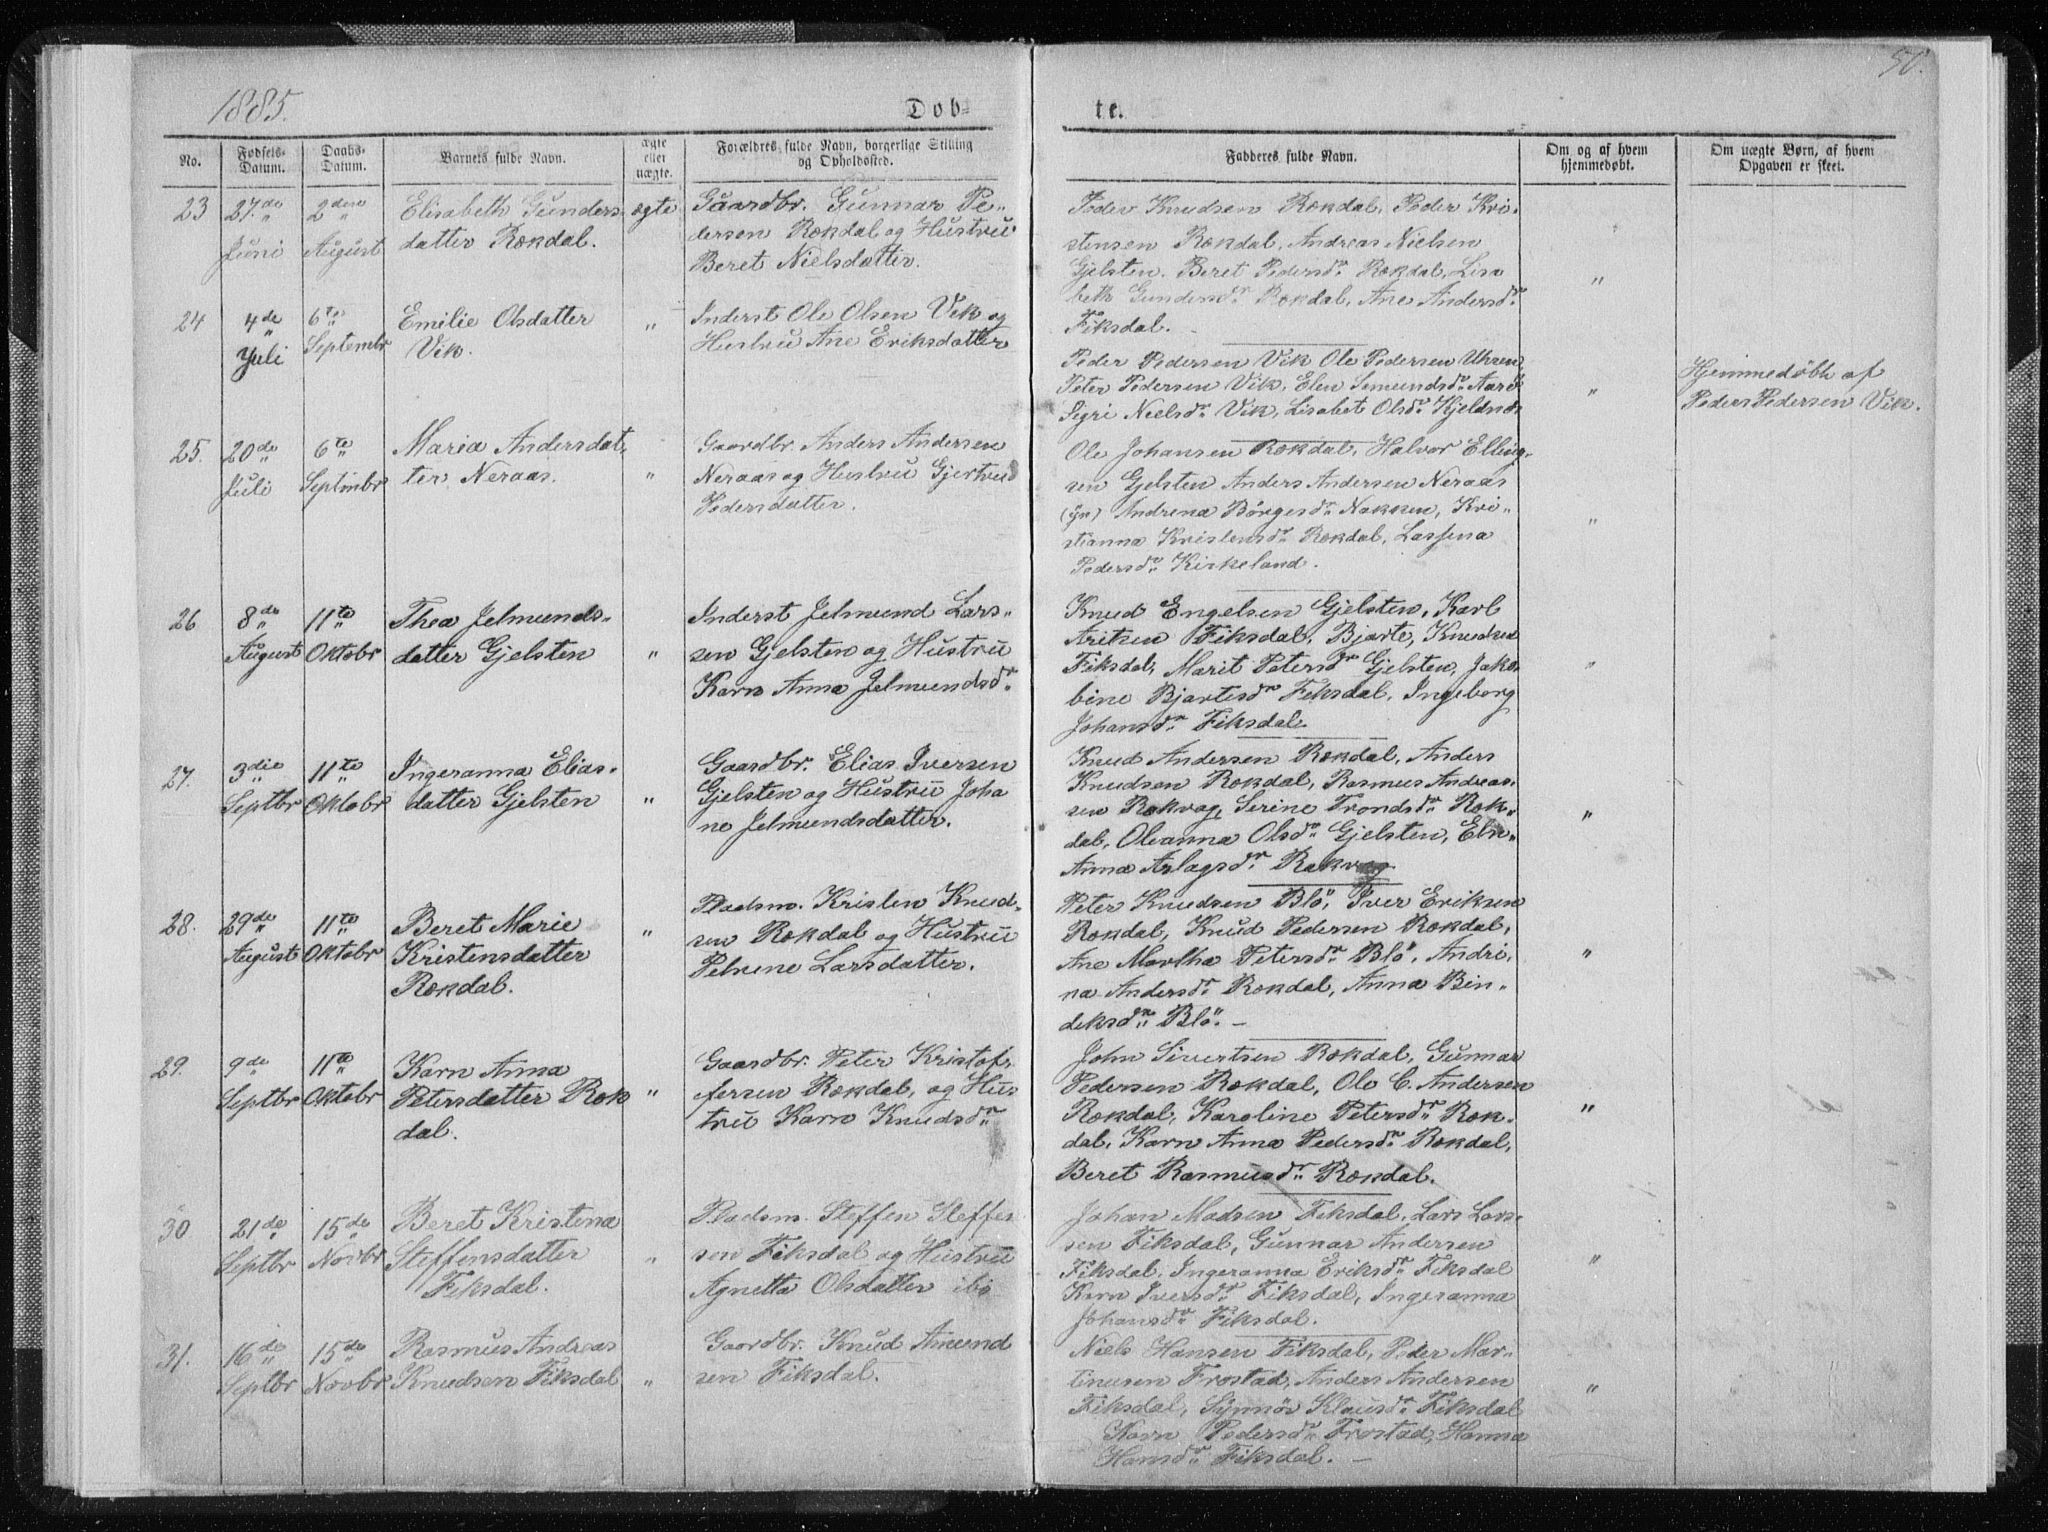 50.
1885.
Døb-
te.
No.
Fødsels-
Datum.
Daabs-
Datum.
Barnets fulde Navn.
ægte
eller
uægte.
Forældres fulde Navn, borgerlige Stilling
og Opholdssted.
Fadderes fulde Navn.
Om og af hvem
hjemmedøbt.
Om uægte Børn, af hvem
Opgaven er skeet.
23
27.de
Juni
2den
August
Elisabeth Gunders
datter Rekdal.
ægte
Gaardbr. Gunnar Pe-
dersen Rekdal og Hustru
Beret Nielsdatter.
Peder Knudsen Rekdal, Peder Kri-
stensen Rekdal, Andreas Nielsen
Gjelsten. Beret Pedersdr Rekdal, Lisa
beth Gundersdr Rekdal, Ane Andersdr
Fiksdal.
"
24
4de
Juli
6te
Septembr
Emilie Olsdatter
Vik.
"
Inderst Ole Olsen Vik og
Hustru Ane Eriksdatter
Peder Pedersen Vik Ole Pedersen
Peter Pedersen Vik, Elen Semundsdr
Sigri Nielsdr Vik, Lisabet Olsdr Kjeldnes
"
Hjemmedøbt af
Peder Pedersen Vik.
25.
20de
Juli
6te
Septmbr
Maria Andersdat-
ter Neraas.
"
Gaardbr. Anders Andersen
Neraas og Hustru Gjertrud
Pedersdatter.
Ole Johansen Rekdal, Halvor Elling-
sen Gjelsten Anders Andersen Neraas
(yn) Andrena Børgesdr Nakken, Kri-
stianna Kristensdr Rekdal, Lassena
Pedersdr Kirkeland.
"
26
8de
August
11te
Oktobr
Thea Jelmunds-
datter Gjelsten
"
Inderst Jelmund Lars-
sen Gjelsten og Hustru
Karn Anna Jelmundsdr
Knud Engelsen Gjelsten, Karl
Fiksdal, Bjarte, Knudsen
Fiksdal, Marit Petersdr Gjelsten, Jako-
bine Bjartesdr Fiksdal, Ingeborg
Johansdr Fiksdal.
"
27.
3die
Septbr
11te
Oktobr
Ingeranna Elias-
datter Gjelsten
"
Gaardbr. Elias Iversen
Gjelsten og Hustru Joha
ne Jelmundsdatter.
Knud Andersen Rekdal, Anders
Knudsen Rekdal, Rasmus Andreas-
sen Rakvag, Serine Trondsdr Rek-
dal, Oleanna Olsdr Gjelsten, Eln-
Anna Aslagsdr Rakvag
"
28.
29de
August
11te
Oktobr
Beret Marie
Kristensdatter
Rekdal.
"
Pladsm. Kristen Knud-
sen Rekdal og Hustru
Petrine Larsdatter.
Peter Knudsen Blø, Iver Eriksen
Rekdal, Knud Pedersen Rekdal,
Ane Martha Petersdr Blø, Andri-
na Andersdr Rekdal, Anna Bin-
deksdr Blø. –
"
29.
9de
Septbr
11te
Oktobr
Karn Anna
Petersdatter Rek
dal.
"
Gaardbr. Peter Kristof-
fersen Rekdal, og Hus
tru Karn Knudsdr
John Sivertsen Rekdal, Gunnar
Pedersen Rekdal, Ole C. Andersen
Rekdal, Karoline Petersdr Rek-
dal, Karn Anna Pedersdr Rekdal,
Beret Rasmusdr Rekdal.
"
30
21de
Septbr
15de
Novbr
Beret Kristena
Steffensdatter
Fiksdal.
"
Pladsm. Steffen Steffen
sen Fiksdal og Hustru
Agnetta Olsdatter ibd
Johan Madsen Fiksdal, Lars Lars-
sen Fiksdal, Gunnar Andersen
Fiksdal, Ingeranna Eriksdr Fiksdal
Karn Iversdr Fiksdal, Ingeranna
Johansdr Fiksdal.
"
31.
16de
Septbr
15de
Novbr
Rasmus Andreas
Knudsen Fiksdal
"
Gaardbr. Knud Amund
sen Fiksdal.
Niels Hansen Fiksdal, Peder Mar-
tinusen Frostad, Anders Andersen
Fiksdal, Synnøv Klausdr Fiksdal
Karn Pedersdr Frostad, Hanna
Hansdr Fiksdal. –
"